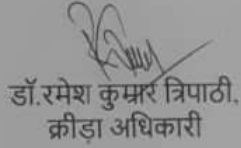 डॉ.रमेश कुमार त्रिपाठी,
क्रीड़ा अधिकारी